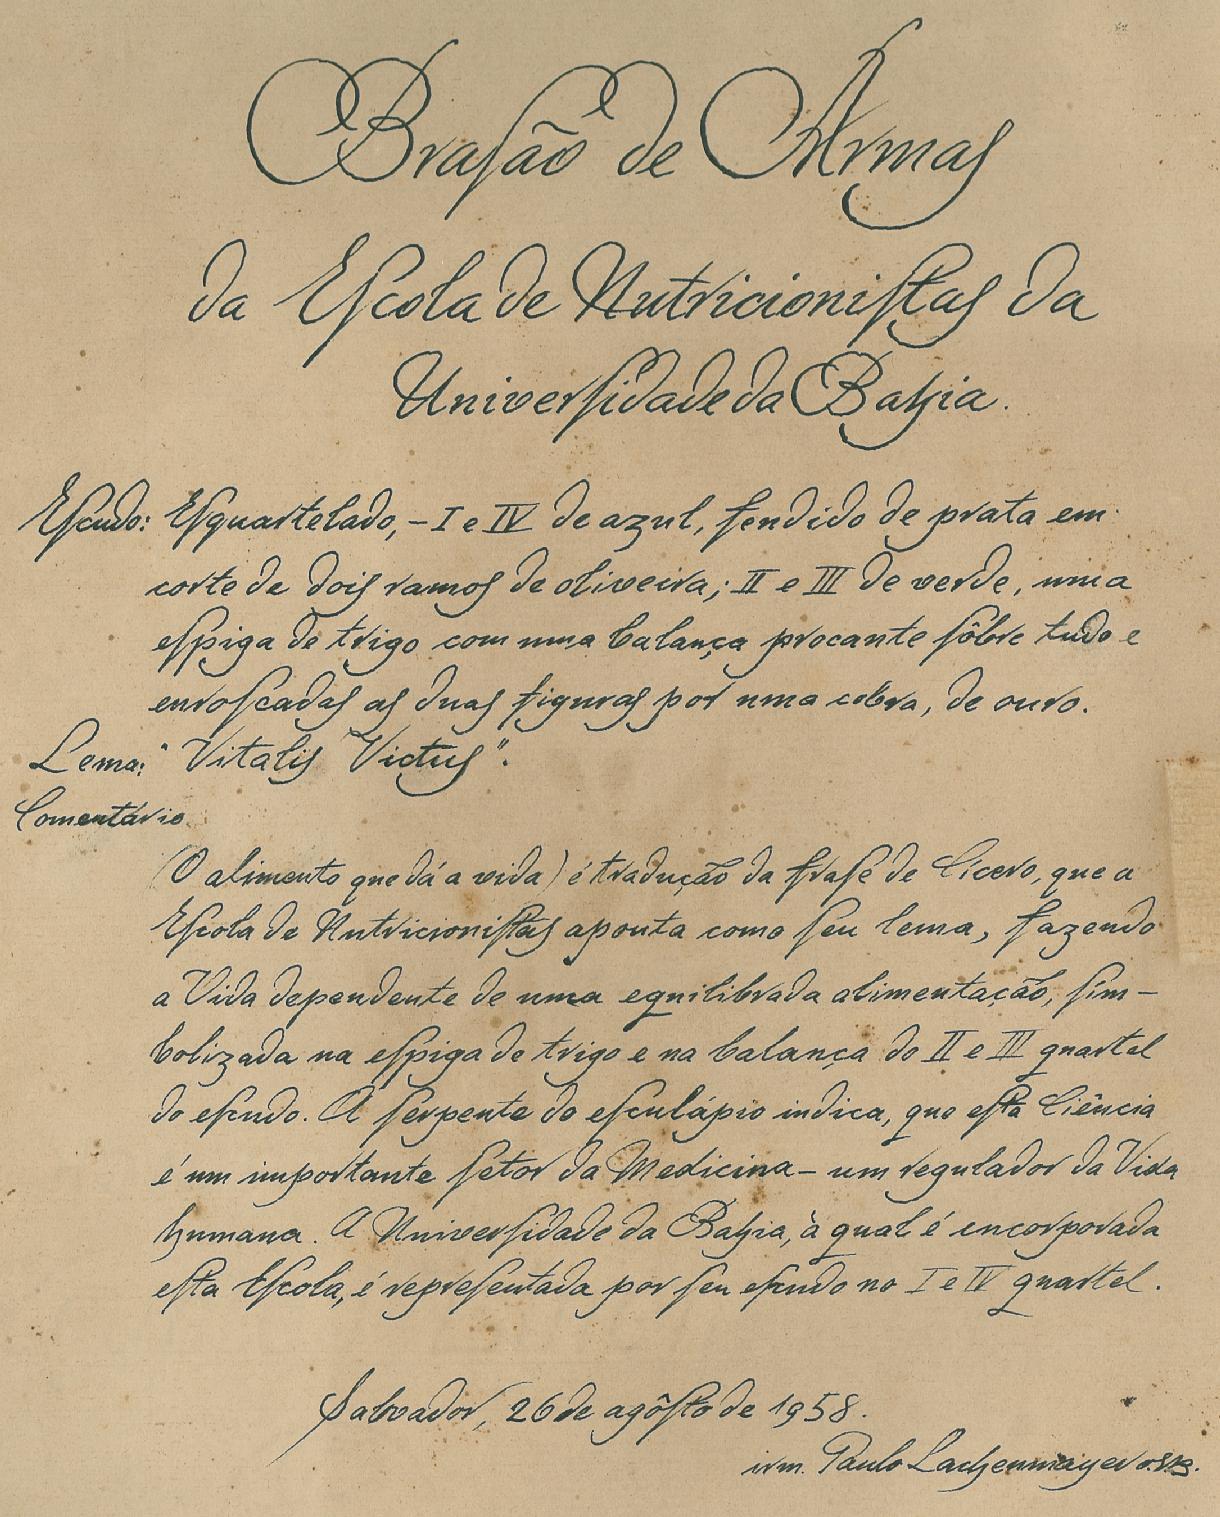 Brasão de Armas
da Escola de Nutricionistas da
Universidade da Bahia.
Escudo: Esquartelado, – I e IV de azul, fendido de prata em
corte de dois ramos de oliveira; II e III de verde, uma
espiga de trigo com uma balança brocante sôbre tudo e
enroscadas as duas figuras por uma cobra, de ouro.
Lema: "Vitalis Victus".
Comentário
(O alimento que dá a vida) é tradução da frase de Cícero, que a
Escola de Nutricionistas aponta como seu lema, fazendo
a Vida dependente de uma equilibrada alimentação, sim-
bolizada na espiga de trigo e na balança do II e III quartel
do escudo. A serpente do esculápio indica, que esta Ciência
é um importante setor da Medicina – um regulador da Vida
humana. A Universidade da Bahia, à qual é encorporada
esta Escola, é representada por seu escudo no I e IV quartel.
Salvador, 26 de agôsto de 1958.
irm. Paulo Lachenmayer o.s.b.